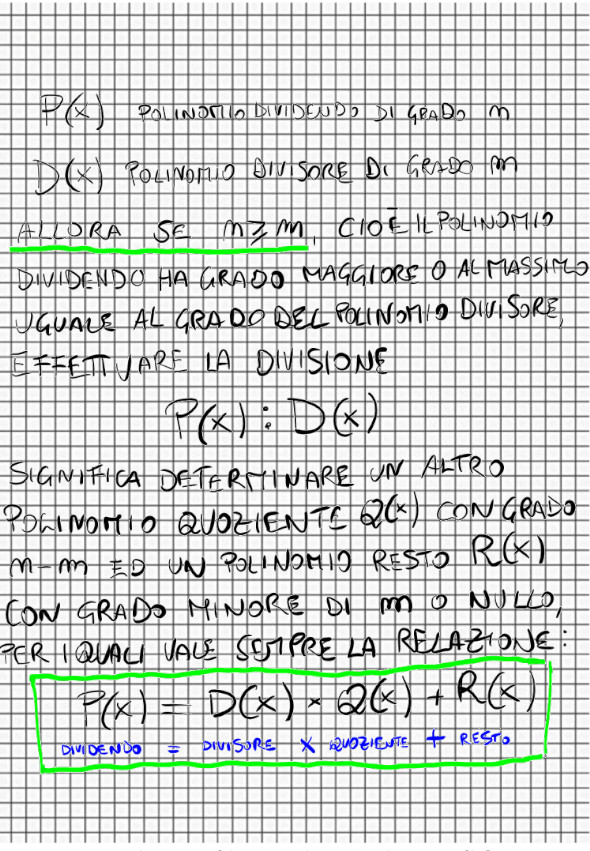 P(x) POLINOMIO DIVIDENDO DI GRADO n
D(x) POLINOMIO DIVISORE DI GRADO m
ALLORA SE n ≥ m, CIOÈ IL POLINOMIO
DIVIDENDO HA GRADO MAGGIORE O AL MASSIMO
UGUALE AL GRADO DEL POLINOMIO DIVISORE,
EFFETTUARE LA DIVISIONE
P(x) : D(x)
SIGNIFICA DETERMINARE UN ALTRO
POLINOMIO QUOZIENTE Q(x) CON GRADO
n-m ED UN POLINOMIO RESTO R(x)
CON GRADO MINORE DI m O NULLO,
PER I QUALI VALE SEMPRE LA RELAZIONE:
P(x) = D(x) × Q(x) + R(x)
DIVIDENDO = DIVISORE × QUOZIENTE + RESTO